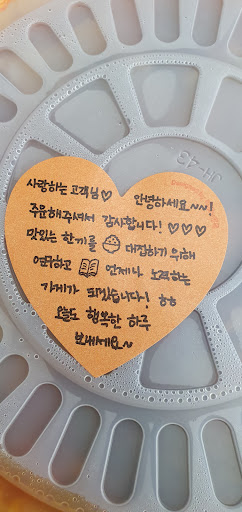 사랑하는 고객님♡ 안녕하세요~~!
주문해주셔서 감사합니다! ♡♡♡
맛있는 한끼를 🍚 대접하기 위해
연구하고 📖 언제나 노력하는
가게가 되겠습니다! ㅎㅎ
오늘도 행복한 하루
보내세요~
JH-43